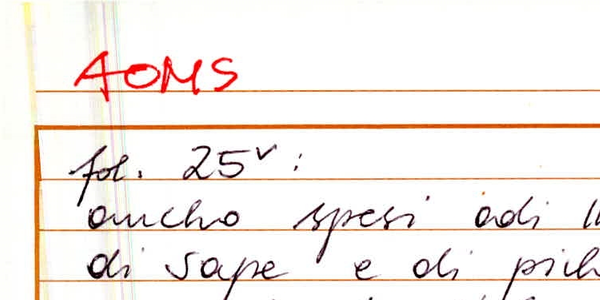 AOMS
fol. 25v:
ancho spesi adi
di sape e di pich